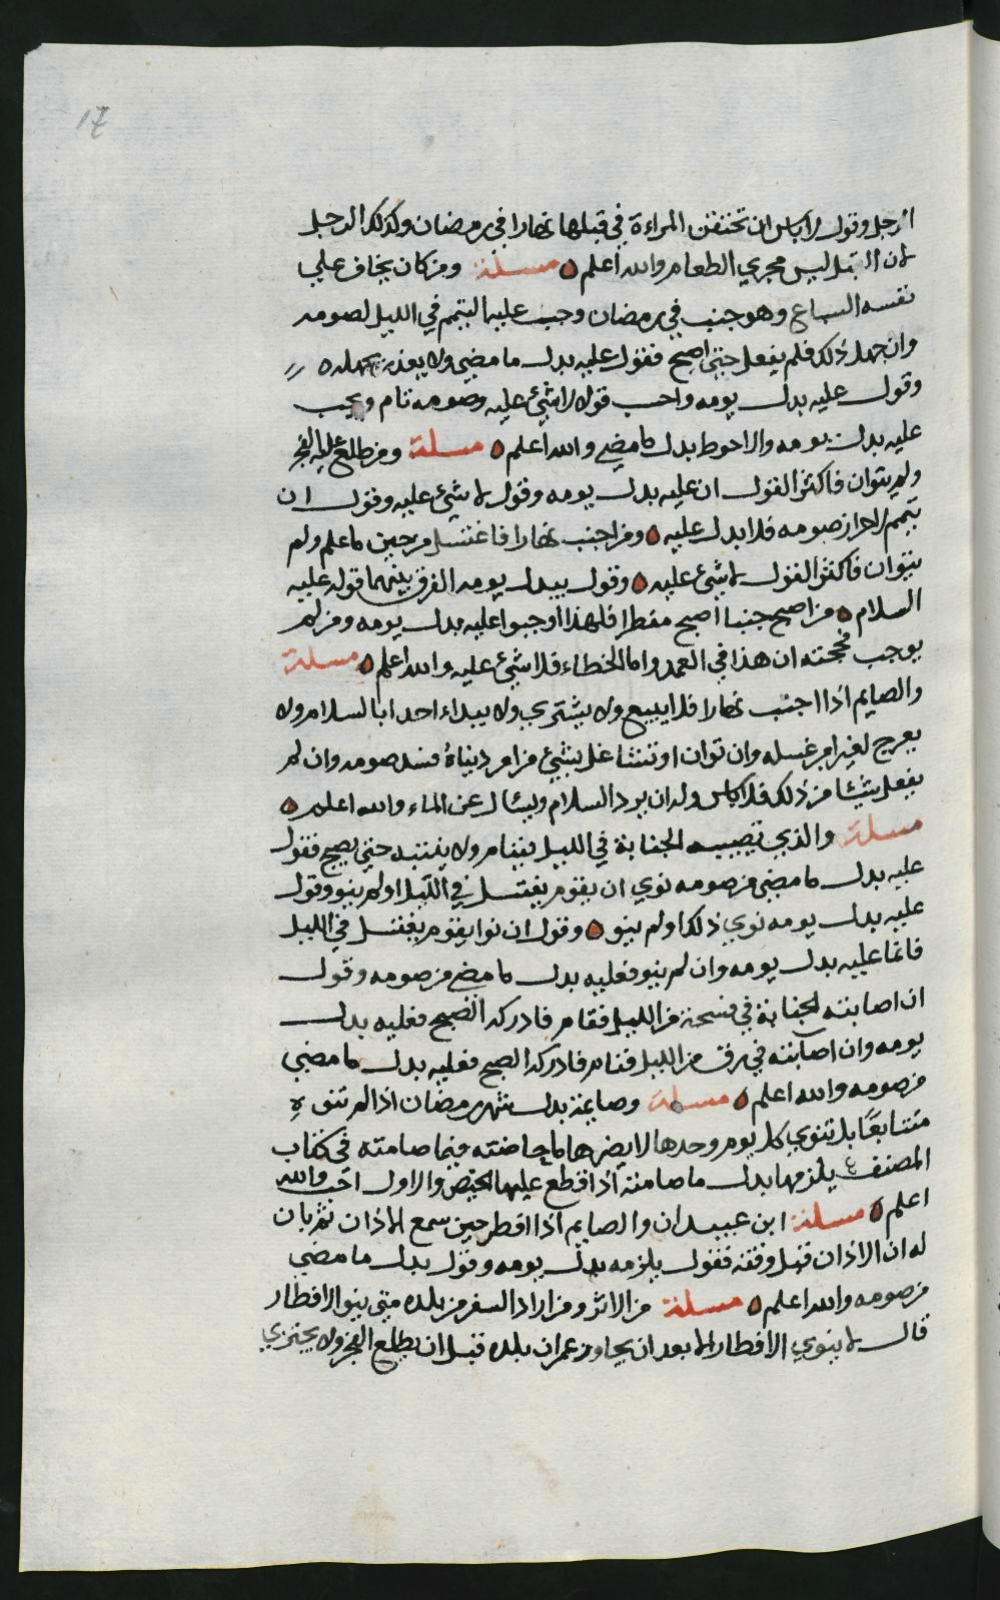 17
الرجل وقول لا باس ان تحتقن المراءة في قبلها نهارا في رمضان وكذلك الرجل
لان القبل ليس مجري الطعام والله اعلم ه مسئلة ومن كان يخاف علي
نفسه السباع وهو جنب في رمضان وجب عليه التيمم في الليل لصومه
وان جهل ذلك فلم يفعل حتي اصبح فقول عليه بدل ما مضي ولا يعذر بجهله ه
وقول عليه بدل يومه واحب قول لا شيئ عليه وصومه تام ويجب
عليه بدل يومه والاحوط بدل ما مضي والله اعلم ه مسئلة ومن طلع عليه الفجر
ولم يتوان فاكثر القول ان عليه بدل يومه وقول لا شيئ عليه وقول ان
تيمم لاحراز صومه فلا بدل عليه ه ومن اجنب نهارا فاغتسل من حين ما علم ولم
يتوان فاكثر القول لا شيئ عليه ه وقول يبدل يومه الفرق بينهما قوله عليه
السلام ه من اصبح جنبا اصبح مفطرا فلهذا اوجبوا عليه بدل يومه ومن لم
يوجب فحجته ان هذا في العمد واما الخطاء فلا شيئ عليه والله اعلم ه مسئلة
والصايم اذا اجنب نهارا فلا يبيع ولا يشتري ولا يبداء احدا بالسلام ولا
يعرج لغير امر غسله وان توان او تشاغل بشيئ من امر دنياه فسد صومه وان لم
يفعل شيئا من ذلك فلا باس وله ان يرد السلام ويسال عن الماء والله اعلم ه
مسئلة والذي تصيبه الجنابة في الليل فينام ولا ينتبه حتي يصبح فقول
عليه بدل ما مضي من صومه نوي ان يقوم يغتسل في الليل او لم ينو وقول
عليه بدل يومه نوي ذلك او لم ينو ه وقول ان نوا يقوم يغتسل في الليل
فانما عليه بدل يومه وان لم ينو فعليه بدل ما مضي من صومه وقول
ان اصابته الجنابة في فسحة من الليل فقام فادركه الصبح فعليه بدل
يومه وان اصابته في من الليل فنام فادركه الصبح فعليه بدل ما مضي
من صومه والله اعلم ه مسئلة وصايمة بدل شهر رمضان اذا لم تنوه
متتابعا بل تنوي كل يوم وحدها لا يضرها ما حاضته فيما صامته في كتاب
المصنف يلزمها بدل ما صامته اذا قطع عليها الحيض والاول احب والله
اعلم ه مسئلة ابن عبيدان والصايم اذا افطر حين سمع الاذان ثم بان
له ان الاذان قبل وقته فقول يلزمه بدل يومه وقول بدل ما مضي
من صومه والله اعلم ه مسئلة من الاثر ومن اراد السفر من بلده متي ينو الافطار
قال لا ينوي الافطار الا بعد ان يجاوز عمران بلده قبل ان يطلع الفجر ولا يجتزي